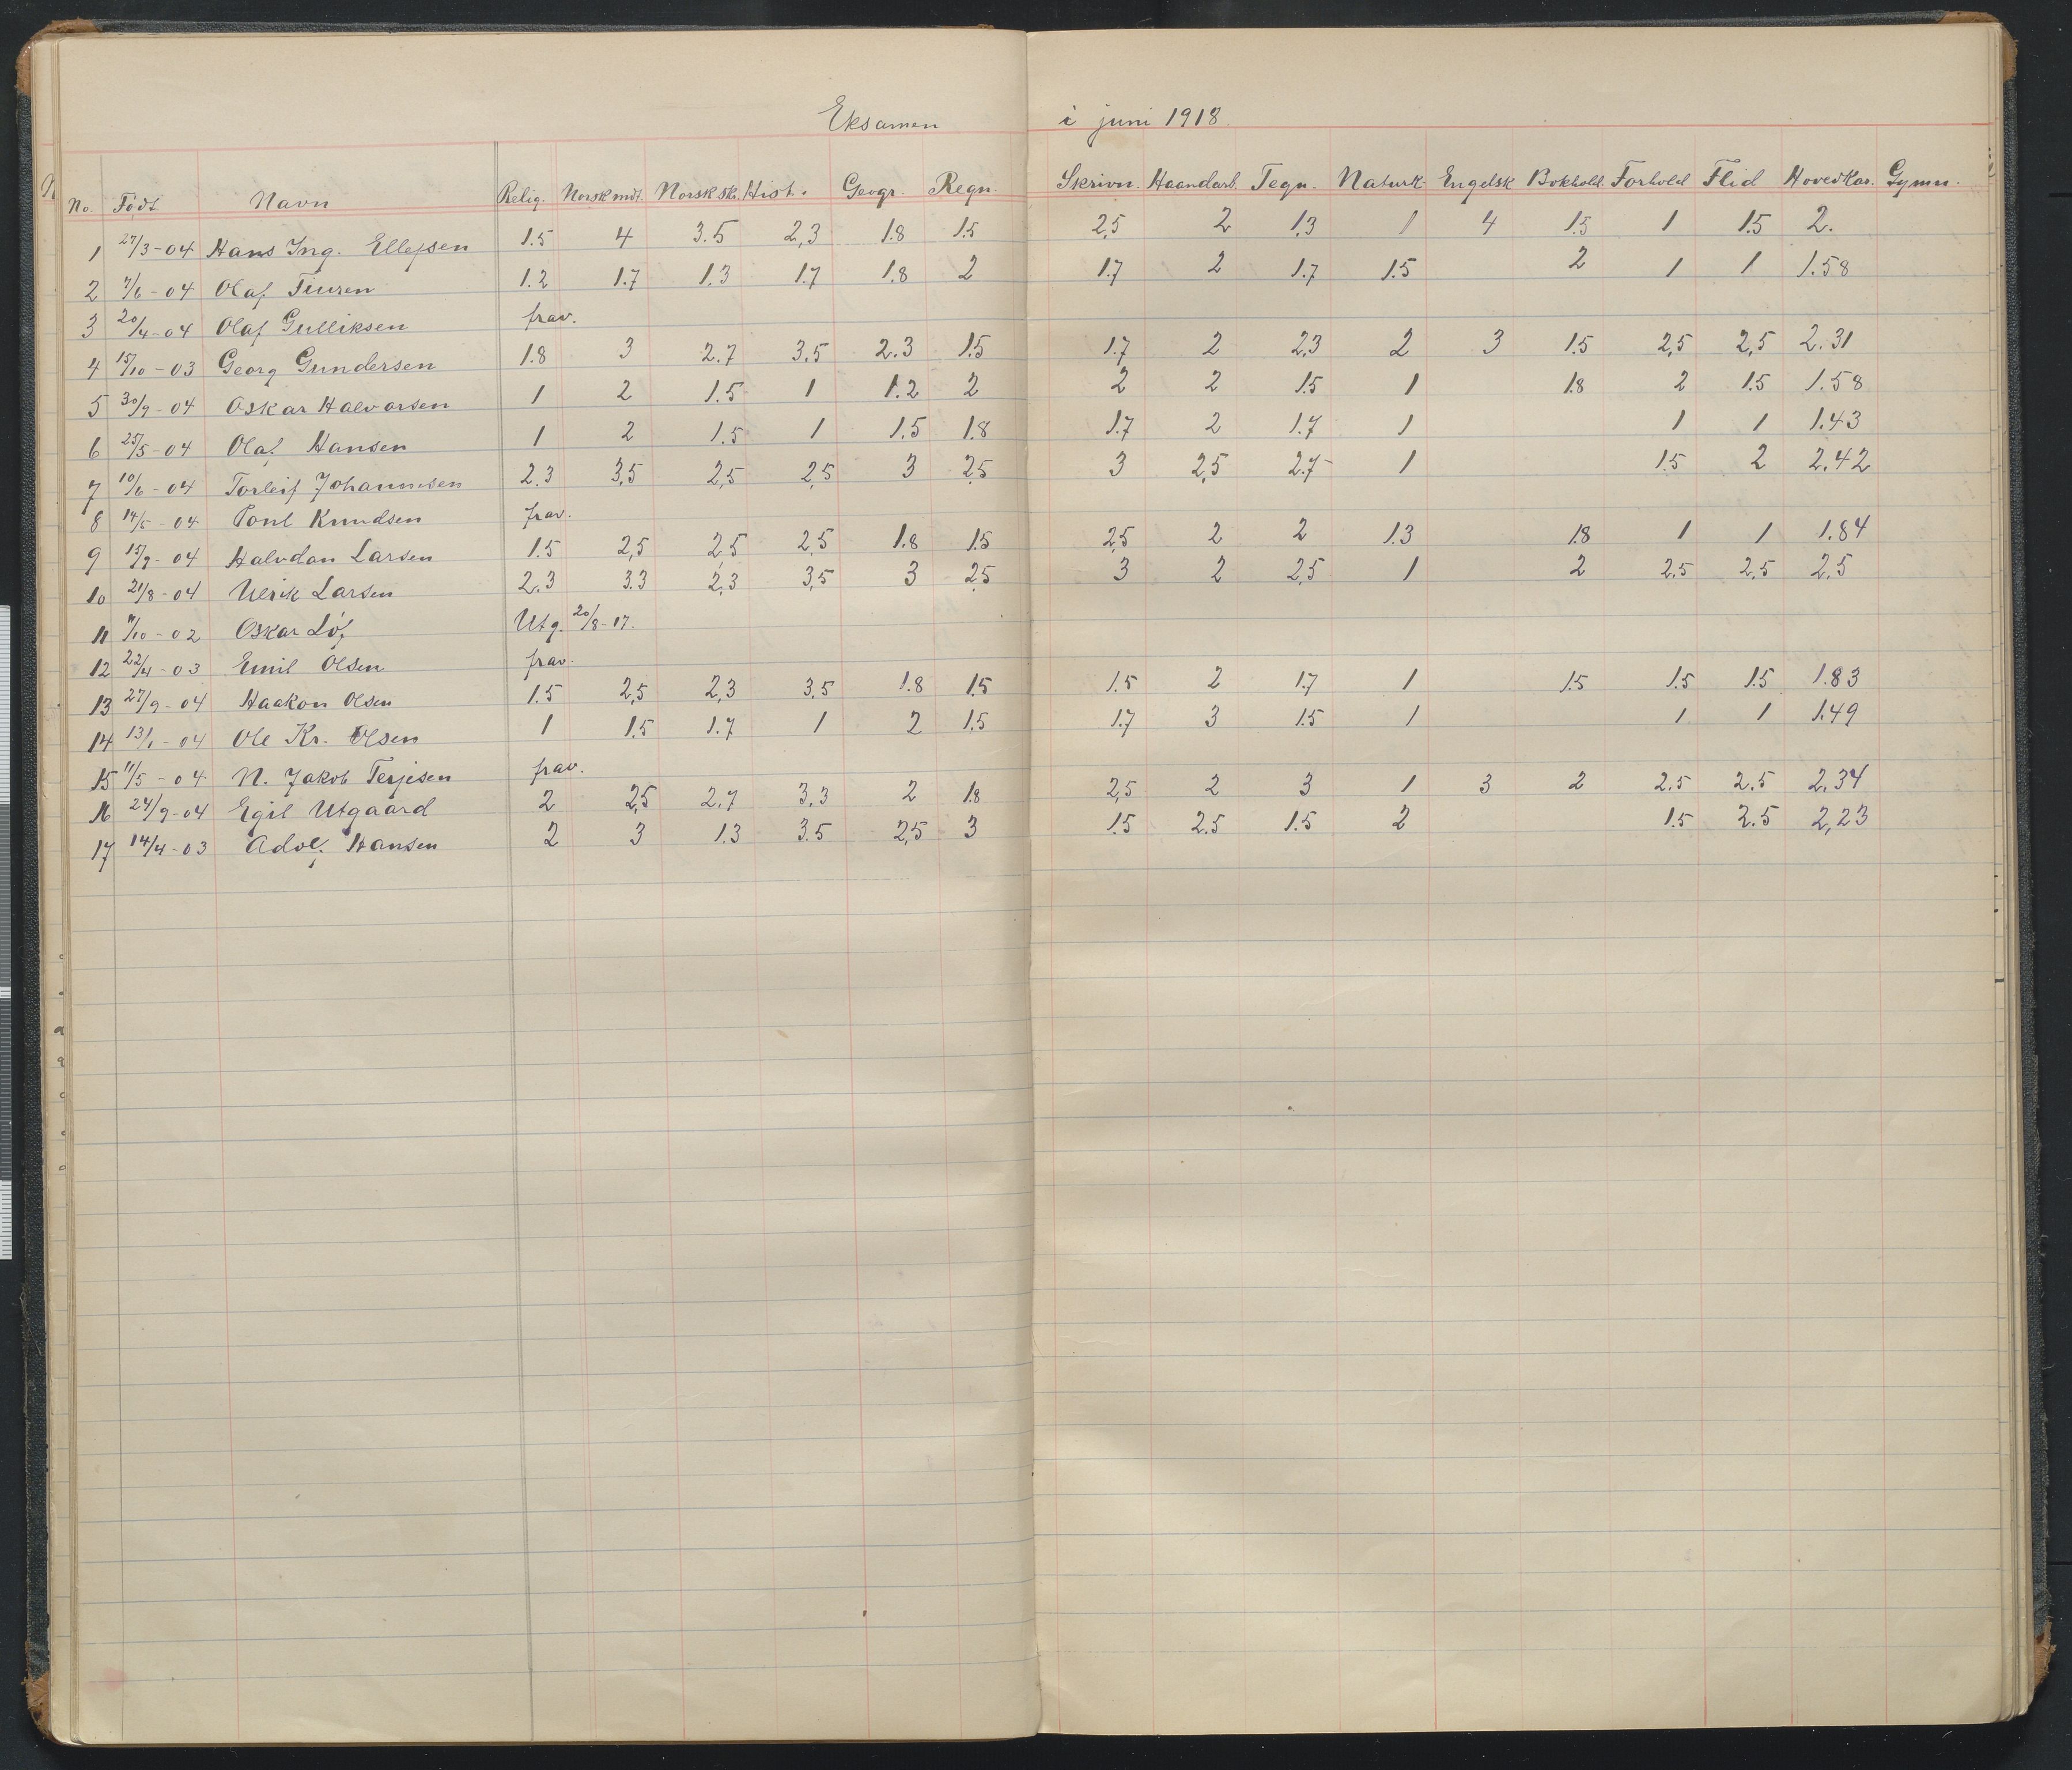 Eksamen i juni 1918.
No. Födt Navn Relig. Norsk mdt. Norsk sk. Hist. Geogr. Regn. Skrivn. Haandarb. Tegn. Naturk. Engelsk Bokhold. Forhold Flid Hovedkar. Gymn.
1 27/3-04 Hans Ing. Ellefsen 1.5 4 3.5 2,3 1.8 1.5 2,5 2 1,3 1 4 1.5 1 1.5 2.
2 7/6-04 Olaf 1.2 1.7 1.3 1.7 1.8 2 1.7 2 1.7 1.5 2 1 1 1.58
3 20/4-04 Olaf Gulliksen frav.
4 15/10-03 Georg Gundersen 1.8 3 2.7 3.5 2.3 1.5 1.7 2 2,3 2 3 1.5 2,5 2,5 2.31
5 30/9-04 Oskar Halvorsen 1 2 1.5 1 1.2 2 2 2 1.5 1 1.8 2 1.5 1.58
6 25/5-04 Olaf Hansen 1 2 1.5 1 1.5 1.8 1.7 2 1.7 1 1 1 1.43
7 10/6-04 Torleif Johannesen 2.3 3,5 2,5 2,5 3 2,5 3 2,5 2.7 1 1.5 2 2.42
8 14/5-04 Poul Knudsen frav.
9 15/9-04 Halvdan Larsen 1.5 2,5 2,5 2,5 1.8 1.5 2,5 2 2 1.3 1.8 1 1 1.84
10 21/8-04 Ulrik Larsen 2.3 3.3 2,3 3,5 3 2,5 3 2 2,5 1 2 2,5 2,5 2,5
11 11/10-02 Oskar Löf Utg. 20/8-17.
12 22/4-03 Emil Olsen frav.
13 27/9-04 Haakon Olsen 1.5 2,5 2,3 3,5 1.8 1.5 1.5 2 1.7 1 1.5 1.5 1.5 1.83
14 13/1-04 Ole Kr. Olsen 1 1.5 1.7 1 2 1.5 1.7 3 1.5 1 1 1 1.49
15 11/5-04 N. Jakob Terjesen frav.
16 24/9-04 Egil Utgaard 2 2,5 2.7 3.3 2 1.8 2,5 2 3 1 3 2 2.5 2.5 2,34
17 14/4-03 Adolf Hansen 2 3 1.3 3.5 2,5 3 1.5 2.5 1.5 2 1.5 2.5 2,23